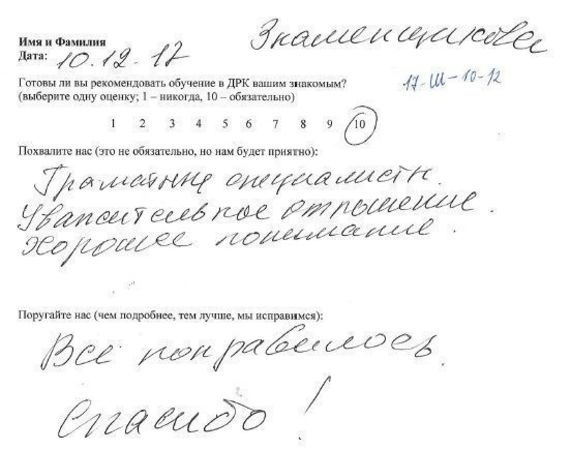 Имя и Фамилия Знаменщикова
Дата: 10.12.17
Готовы ли вы рекомендовать обучение в ДРК вашим знакомым?
17-Ш-10-12
(выберите одну оценку; 1 – никогда, 10 – обязательно)
1 2 3 4 5 6 7 8 9 10
Похвалите нас (это не обязательно, но нам будет приятно):
Грамотные специалисты.
Уважительное отношение.
Хорошее понимание.
Поругайте нас (чем подробнее, тем лучше, мы исправимся):
Все понравилось
Спасибо!